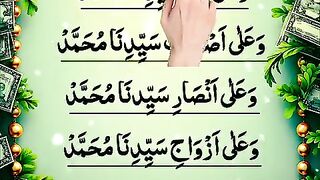 وَعَلٰى سَيِّدِنَا مُحَمَّدْ
وَعَلٰى اَنْصَارِ سَيِّدِنَا مُحَمَّدْ
وَعَلٰى اَزْوَاجِ سَيِّدِنَا مُحَمَّدْ